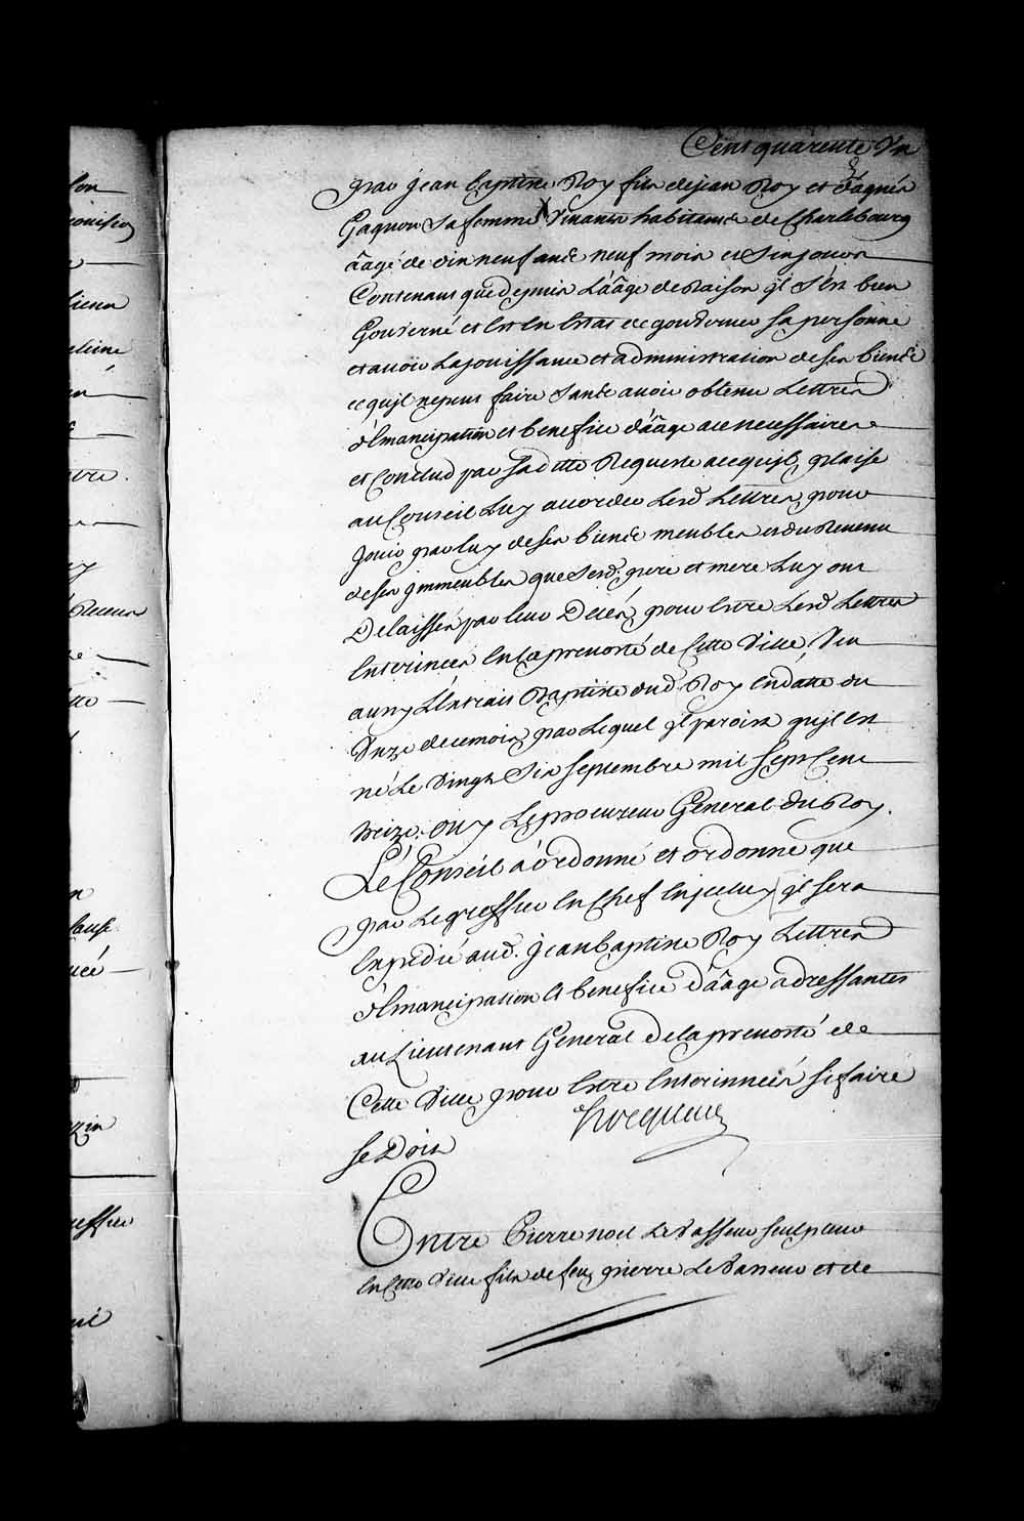 Cent quarente Vn
par jean Baptiste Roy fils dejean Roy et d'agnés
Gagnon Sa femme Vivants habitants de Charlebourg
ââgé de dix neuf ans neuf mois et Six jours
Contenant que depuis L'ââge de Raison jl s'est bien
Gouverné et Est En Estat de gouverner sa personne
et avoir La jouissance et administration de ses biens
ce qujl ne peut faire Sans avoir obtenu Lettres
d'Emancipation et benefice d'ââge a ce necessaires
et Conclud par Sa ditte Requeste a ce qujl plaise
au Conseil Luy accorder Lesd. Lettres, pour
Jouir par luy de ses biens meubles et du Revenu
de ses jmmeubles que Sesd. pere et mere Luy ont
Delaissés par leur Décés, pour Estre Lesd. Lettres
Enterinées En La prevosté de Cette Ville, Veu
aussy L'Extrait Baptistaire dud. Roy En datte du
Onze de ce mois, par Lequel jl paroist qujl est
né Le Vingt Six Septembre mil Sept Cent
treize. ouy Le procureur General du Roy.
Le Conseil a ordonné et ordonne que
par Le greffier En Chef En jceluy jl sera
Expedié aud. Jean Baptiste Roy Lettres
d'Emancipation et benefice d'ââge adressantes
au Lieutenant General de la prevosté de
Cette Ville pour Estre Enterinnées si faire
se Doit
hocquart
Entre Pierre noel Le Vasseur sculpteur
En Cette Ville fils de feu pierre Le Vasseur et de